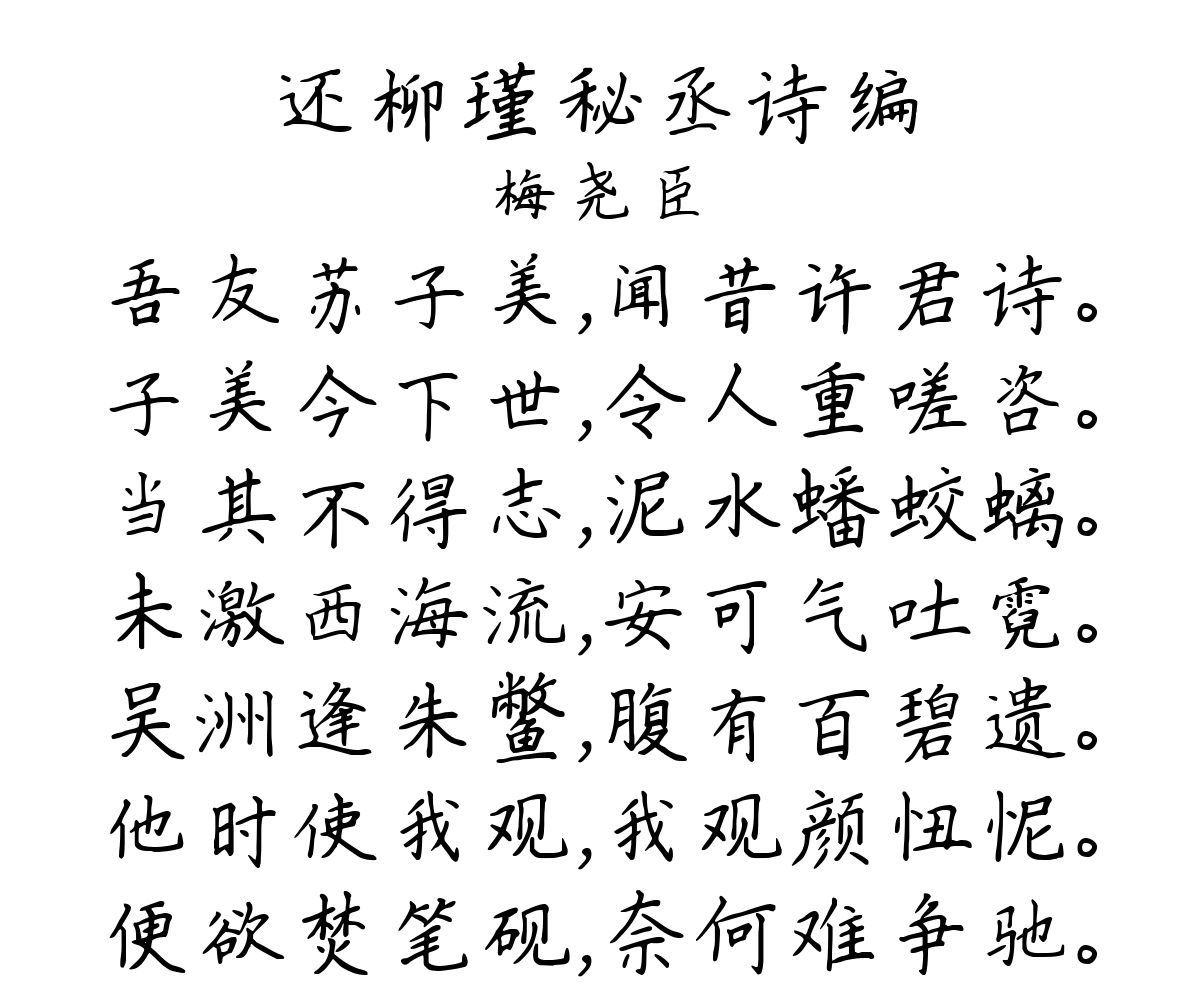 还柳瑾秘丞诗编
梅尧臣
吾友苏子美,闻昔许君诗。
子美今下世,令人重嗟咨。
当其不得志,泥水蟠蛟螭。
未激西海流,安可气吐霓。
吴洲逢朱鳖,腹有百碧遗。
他时使我观,我观颜忸怩。
便欲焚笔砚,奈何难争驰。